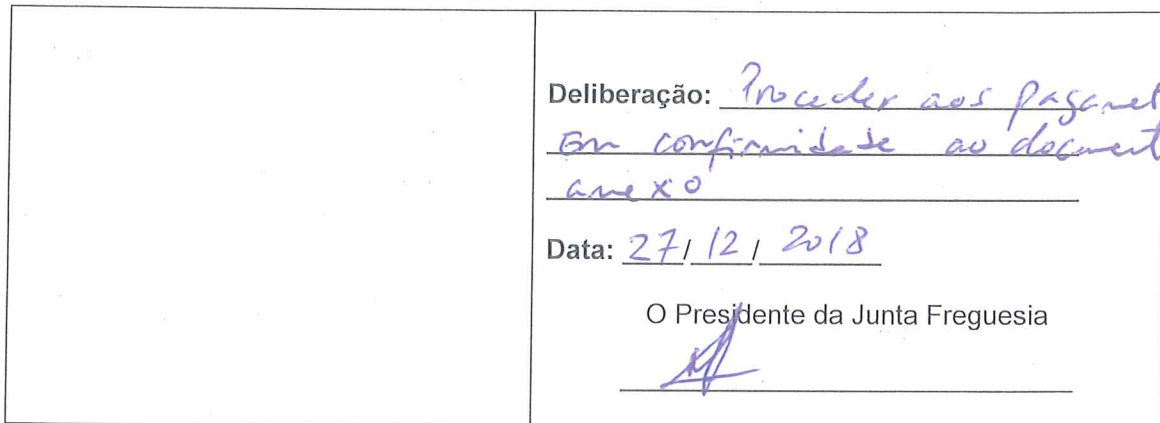 Deliberação: Proceder aos pagament
Em conformidade ao document
anexo
Data: 27/12/2018
O Presidente da Junta Freguesia